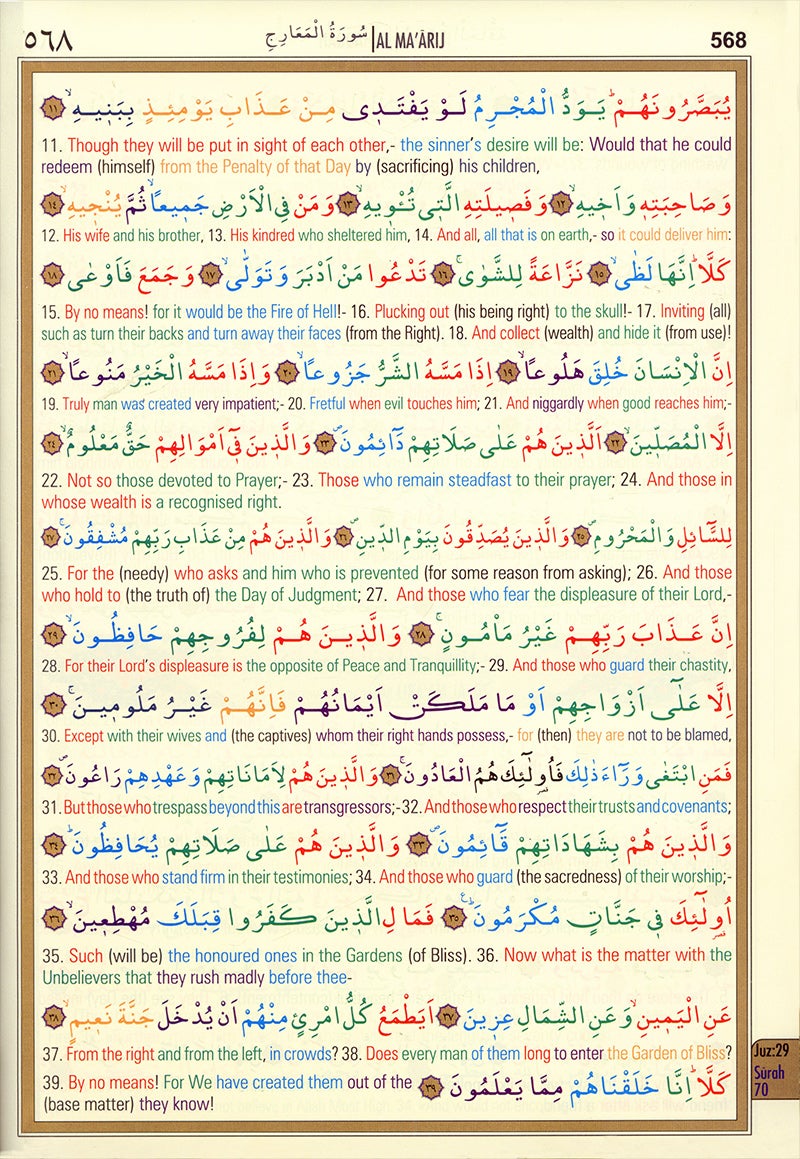 ٥٦٨ سُورَةُ الْمَعَارِجِ AL MA'ĀRIJ 568
يُبَصَّرُونَهُمْ يَوَدُّ الْمُجْرِمُ لَوْ يَفْتَدٖى مِنْ عَذَابِ يَوْمِئِذٍ بِبَنٖيهِ ١١
11. Though they will be put in sight of each other,- the sinner's desire will be: Would that he could
redeem (himself) from the Penalty of that Day by (sacrificing) his children,
وَصَاحِبَتِهٖ وَاَخٖيهِ ١٢ وَفَصٖيلَتِهِ الَّتٖى تُـْٔوٖيهِ ١٣ وَمَنْ فِى الْاَرْضِ جَمٖيعاً ثُمَّ يُنْجٖيهِ ١٤
12. His wife and his brother, 13. His kindred who sheltered him, 14. And all, all that is on earth,- so it could deliver him:
كَلَّا اِنَّهَا لَظٰى ١٥ نَزَّاعَةً لِلشَّوٰى ١٦ تَدْعُوا مَنْ اَدْبَرَ وَتَوَلّٰى ١٧ وَجَمَعَ فَاَوْعٰى ١٨
15. By no means! for it would be the Fire of Hell!- 16. Plucking out (his being right) to the skull!- 17. Inviting (all)
such as turn their backs and turn away their faces (from the Right). 18. And collect (wealth) and hide it (from use)!
اِنَّ الْاِنْسَانَ خُلِقَ هَلُوعاً ١٩ اِذَا مَسَّهُ الشَّرُّ جَزُوعاً ٢٠ وَاِذَا مَسَّهُ الْخَيْرُ مَنُوعاً ٢١
19. Truly man was created very impatient;- 20. Fretful when evil touches him; 21. And niggardly when good reaches him;-
اِلَّا الْمُصَلّٖينَ ٢٢ اَلَّذٖينَ هُمْ عَلٰى صَلَاتِهِمْ دَٓائِمُونَ ٢٣ وَالَّذٖينَ فٖٓى اَمْوَالِهِمْ حَقٌّ مَعْلُومٌ ٢٤
22. Not so those devoted to Prayer;- 23. Those who remain steadfast to their prayer; 24. And those in
whose wealth is a recognised right.
لِلسَّٓائِلِ وَالْمَحْرُومِ ٢٥ وَالَّذٖينَ يُصَدِّقُونَ بِيَوْمِ الدّٖينِ ٢٦ وَالَّذٖينَ هُمْ مِنْ عَذَابِ رَبِّهِمْ مُشْفِقُونَ ٢٧
25. For the (needy) who asks and him who is prevented (for some reason from asking); 26. And those
who hold to (the truth of) the Day of Judgment; 27. And those who fear the displeasure of their Lord,-
اِنَّ عَذَابَ رَبِّهِمْ غَيْرُ مَاْمُونٍ ٢٨ وَالَّذٖينَ هُمْ لِفُرُوجِهِمْ حَافِظُونَ ٢٩
28. For their Lord's displeasure is the opposite of Peace and Tranquillity;- 29. And those who guard their chastity,
اِلَّا عَلٰٓى اَزْوَاجِهِمْ اَوْ مَا مَلَكَتْ اَيْمَانُهُمْ فَاِنَّهُمْ غَيْرُ مَلُومٖينَ ٣٠
30. Except with their wives and (the captives) whom their right hands possess,- for (then) they are not to be blamed,
فَمَنِ ابْتَغٰى وَرَٓاءَ ذٰلِكَ فَاُو۬لٰٓئِكَ هُمُ الْعَادُونَ ٣١ وَالَّذٖينَ هُمْ لِاَمَانَاتِهِمْ وَعَهْدِهِمْ رَاعُونَ ٣٢
31. But those who trespass beyond this are transgressors;- 32. And those who respect their trusts and covenants;
وَالَّذٖينَ هُمْ بِشَهَادَاتِهِمْ قَٓائِمُونَ ٣٣ وَالَّذٖينَ هُمْ عَلٰى صَلَاتِهِمْ يُحَافِظُونَ ٣٤
33. And those who stand firm in their testimonies; 34. And those who guard (the sacredness) of their worship;-
اُو۬لٰٓئِكَ فٖى جَنَّاتٍ مُكْرَمُونَ ٣٥ فَمَالِ الَّذٖينَ كَفَرُوا قِبَلَكَ مُهْطِعٖينَ ٣٦
35. Such (will be) the honoured ones in the Gardens (of Bliss). 36. Now what is the matter with the
Unbelievers that they rush madly before thee-
عَنِ الْيَمٖينِ وَعَنِ الشِّمَالِ عِزٖينَ ٣٧ اَيَطْمَعُ كُلُّ امْرِئٍ مِنْهُمْ اَنْ يُدْخَلَ جَنَّةَ نَعٖيمٍ ٣٨
37. From the right and from the left, in crowds? 38. Does every man of them long to enter the Garden of Bliss?
كَلَّا اِنَّا خَلَقْنَاهُمْ مِمَّا يَعْلَمُونَ ٣٩
39. By no means! For We have created them out of the
(base matter) they know!
Juz:29
Sūrah
70